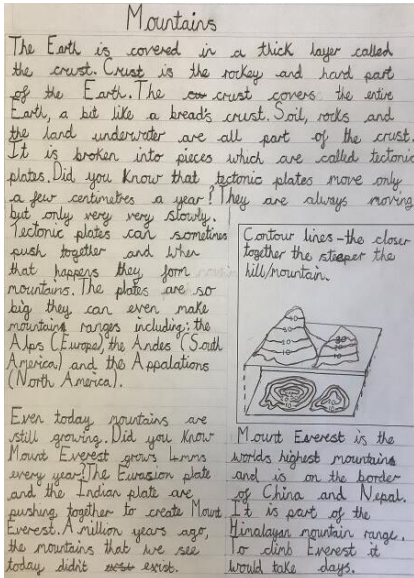 Mountains
The Earth is covered in a thick layer called
the crust. Crust is the rockey and hard part
of the Earth. The crust covers the entire
Earth, a bit like a bread's crust. Soil, rocks and
the land underwater are all part of the crust.
It is broken into pieces which are called tectonic
plates. Did you know that tectonic plates move only
a few centimetres a year? They are always moving
but only very very slowly.
Tectonic plates can sometimes
push together and when
that happens they form
mountains. The plates are so
big they can even make
mountains ranges including: the
Alps (Europe), the Andes (South
America) and the Appalations
(North America).
Even today mountains are
still growing. Did you know
Mount Everest grows 4mms
every year! The Eurasion plate
and the Indian plate are
pushing together to create Mount
Everest. A million years ago,
the mountains that we see
today didn't exist.
Contour lines - the closer
together the steeper the
hill/mountain.
40
30
20
10
30
20
10
Mount Everest is the
worlds highest mountains
and is on the border
of China and Nepal.
It is part of the
Himalayan mountain range.
To climb Everest it
would take days.